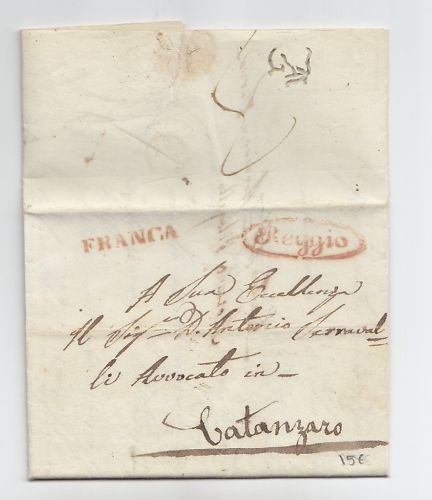 FRANCA
Reggio
A Sua Eccellenza
Il Sig.in D. Antonio Serraval-
li Avvocato in-
Catanzaro
15€